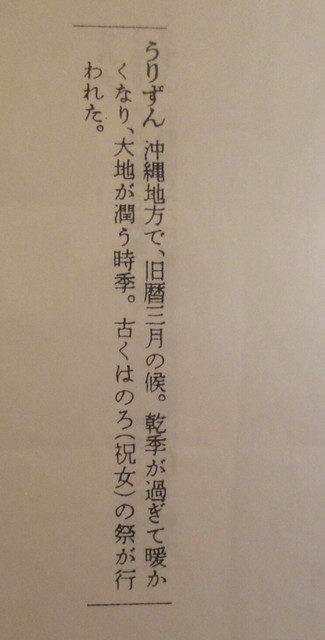 うりずん 沖縄地方で、旧暦三月の候。乾季が過ぎて暖か
くなり、大地が潤う時季。古くはのろ(祝女)の祭が行
われた。